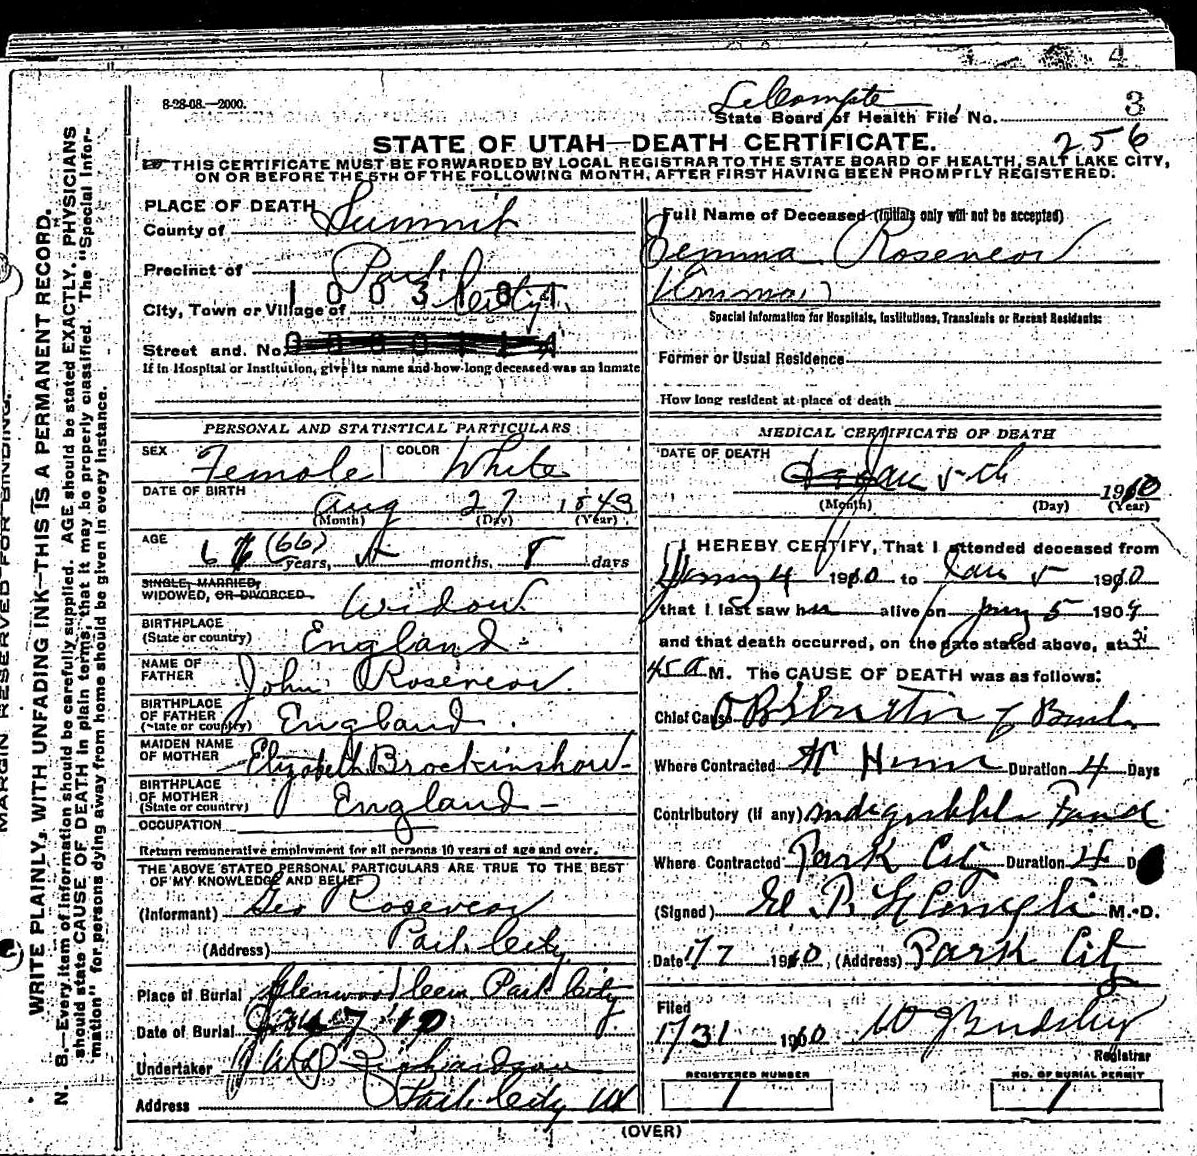 4
8-28-08.—2000.
LeCompte
3
State Board of Health File No.
256
STATE OF UTAH—DEATH CERTIFICATE.
THIS CERTIFICATE MUST BE FORWARDED BY LOCAL REGISTRAR TO THE STATE BOARD OF HEALTH, SALT LAKE CITY,
ON OR BEFORE THE 5TH OF THE FOLLOWING MONTH, AFTER FIRST HAVING BEEN PROMPTLY REGISTERED.
MARGIN RESERVED FOR BINDING.
WRITE PLAINLY, WITH UNFADING INK—THIS IS A PERMANENT RECORD.
N. B.—Every item of information should be carefully supplied. AGE should be stated EXACTLY. PHYSICIANS
should state CAUSE OF DEATH in plain terms, that it may be properly classified. The "Special Infor-
mation" for persons dying away from home should be given in every instance.
PLACE OF DEATH
County of Summit
Precinct of Park
1003184
City, Town or Village of City
Street and. No.
If in Hospital or Institution, give its name and how long deceased was an inmate
PERSONAL AND STATISTICAL PARTICULARS
SEX Female COLOR White
DATE OF BIRTH Aug 27 1843
(Month) (Day) (Year)
AGE 66 (66) years, months, 8 days
SINGLE, MARRIED,
WIDOWED, OR DIVORCED Widow
BIRTHPLACE
(State or country) England
NAME OF
FATHER John Rosevear
BIRTHPLACE
OF FATHER
(State or country) England
MAIDEN NAME
OF MOTHER Elizabeth Brockinshow
BIRTHPLACE
OF MOTHER
(State or country) England
OCCUPATION
Return remunerative employment for all persons 10 years of age and over.
THE ABOVE STATED PERSONAL PARTICULARS ARE TRUE TO THE BEST
OF MY KNOWLEDGE AND BELIEF
(Informant) Geo Rosevear
(Address) Park City
Place of Burial Glenwood Cem Park City
Date of Burial Jan 7 10
Undertaker Richardson
Address Park City Ut
Full Name of Deceased (Initials only will not be accepted)
Jemma Rosevear
(Emma)
Special Information for Hospitals, Institutions, Transients or Recent Residents:
Former or Usual Residence
How long resident at place of death
MEDICAL CERTIFICATE OF DEATH
DATE OF DEATH
Jan 5th 1910
(Month) (Day) (Year)
I HEREBY CERTIFY, That I attended deceased from
4 1910 to Jan 5 1910
that I last saw her alive on 5 1909
and that death occurred, on the date stated above, at 3
45 a M. The CAUSE OF DEATH was as follows:
Chief Cause Obstruction of Bowels
Where Contracted At Home Duration 4 Days
Contributory (if any) Indigestible Food
Where Contracted Park City Duration 4 D
(Signed) M.D.
Date 1/7 1910 (Address) Park City
Filed
1/31 1910
Registrar
REGISTERED NUMBER
1
NO. OF BURIAL PERMIT
1
(OVER)